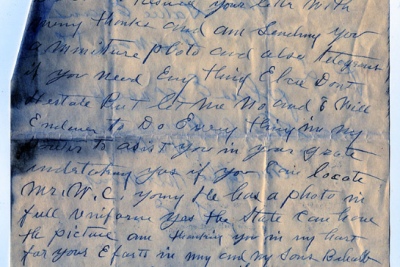 your letter with
many thanks and am Sending you
a miniture photo and also telegram
if you need Eny thing Else Dont
Hestate But let me No and I Will
Endever to Do Every thing in my
to assist you in your grate
undertaking yes if you Can locate
Mr. W. C. young He has a photo in
full uniform yes the State Can have
the picture am thanking you in my heart
for your Eforts in my and my Sons Behalf